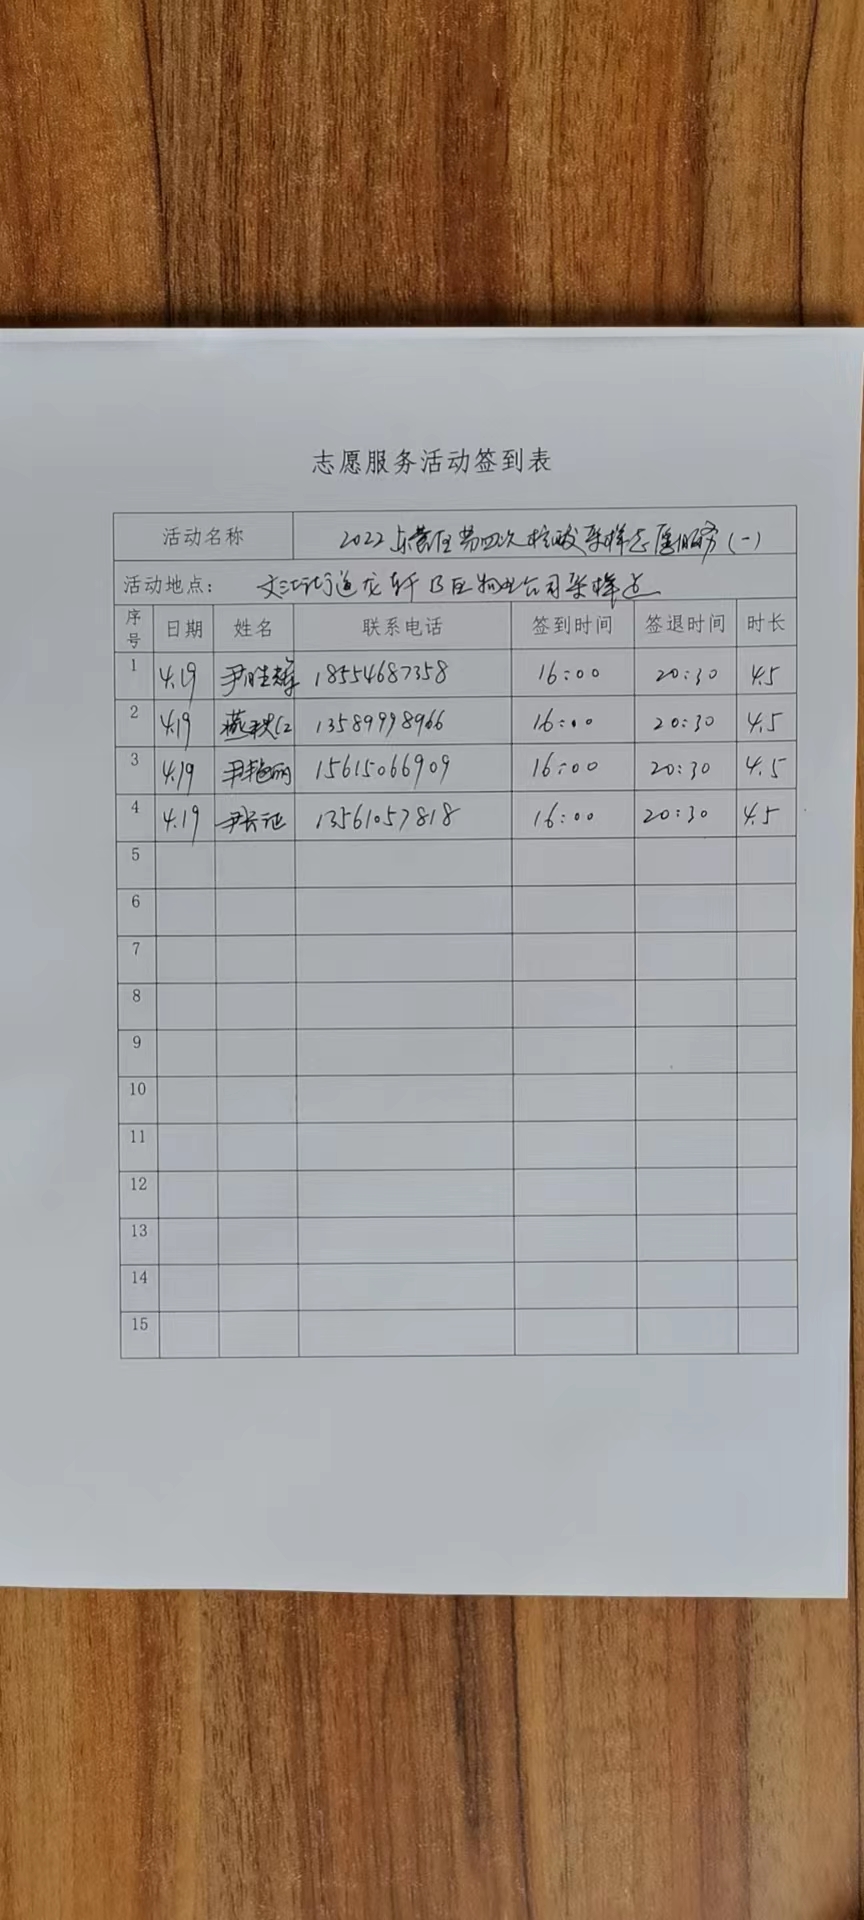 志愿服务活动签到表
活动名称 2022东营区第四次核酸采样志愿服务(一)
活动地点: 文汇街道龙轩B区物业公司采样点
序号 日期 姓名 联系电话 签到时间 签退时间 时长
1 4.19 尹胜 18554687358 16:00 20:30 4.5
2 4.19 燕 13589998966 16:00 20:30 4.5
3 4.19 尹艳丽 15615066909 16:00 20:30 4.5
4 4.19 尹长征 13561057818 16:00 20:30 4.5
5
6
7
8
9
10
11
12
13
14
15